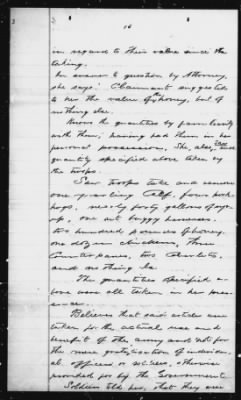 16
in regard to their value since the
taking.
In answer to question by Attorney,
she says: Claimant suggested
to her the value of the honey, but of
nothing else.
Knows the quantities by familiarity
with them, having had them in her
personal possession. She, also, saw
quantity specified above taken by
the troops.
Saw troops take and remove
one yearling calf, four pork
hogs, nearly forty gallons of syr-
up, one set buggy harness,
two hundred pounds of honey,
one dozen chickens, three
counterpanes, two blankets,
and nothing else.
The quantities specified a-
bove were all taken in her pres-
ence.
Believes that said articles were
taken for the actual use and
benefit of the army and not for
the mere gratification of individu-
al officers or soldiers, otherwise
provided for by the Government
Soldiers told her, that they were